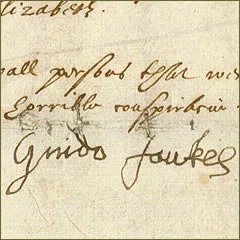 Elizabeth.
all persons that wer
horrible conspiracie
Guido fawkes